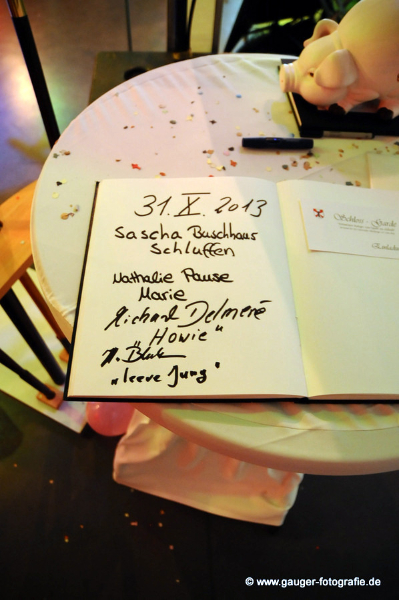 31. X. 2013
Sascha Buschhaus
Schluffen
Nathalie Pause
Marie
Richard Delmeré
"Howie"
„leeve Jung"
Schloss - Garde
© www.gauger-fotografie.de